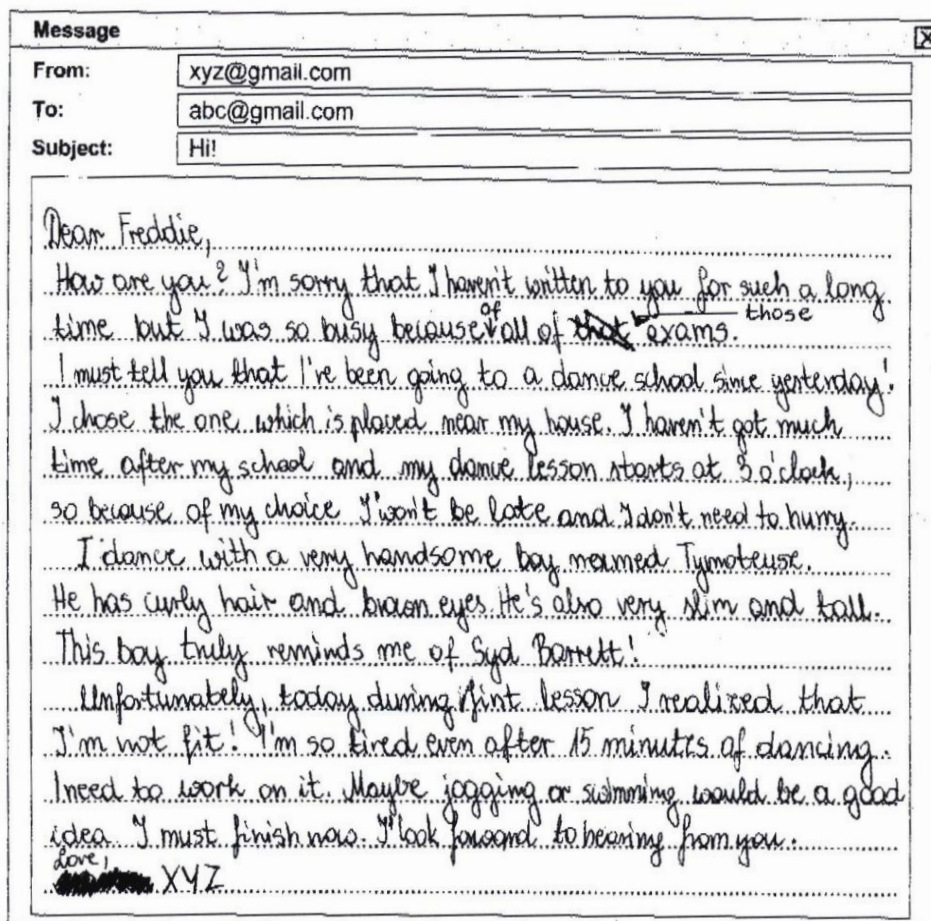 Message
From: xyz@gmail.com
To: abc@gmail.com
Subject: Hi!
Dear Freddie,
How are you? I'm sorry that I haven't written to you for such a long
time but I was so busy because of all of those exams.
I must tell you that I've been going to a dance school since yesterday!
I chose the one which is placed near my house. I haven't got much
time after my school and my dance lesson starts at 3 o'clock,
so because of my choice I won't be late and I don't need to hurry.
I dance with a very handsome boy named Tymoteusz.
He has curly hair and brown eyes. He's also very slim and tall.
This boy truly reminds me of Syd Barrett!
Unfortunately, today during first lesson I realized that
I'm not fit! I'm so tired even after 15 minutes of dancing.
I need to work on it. Maybe jogging or swimming would be a good
idea. I must finish now. I look forward to hearing from you.
Love,
XYZ